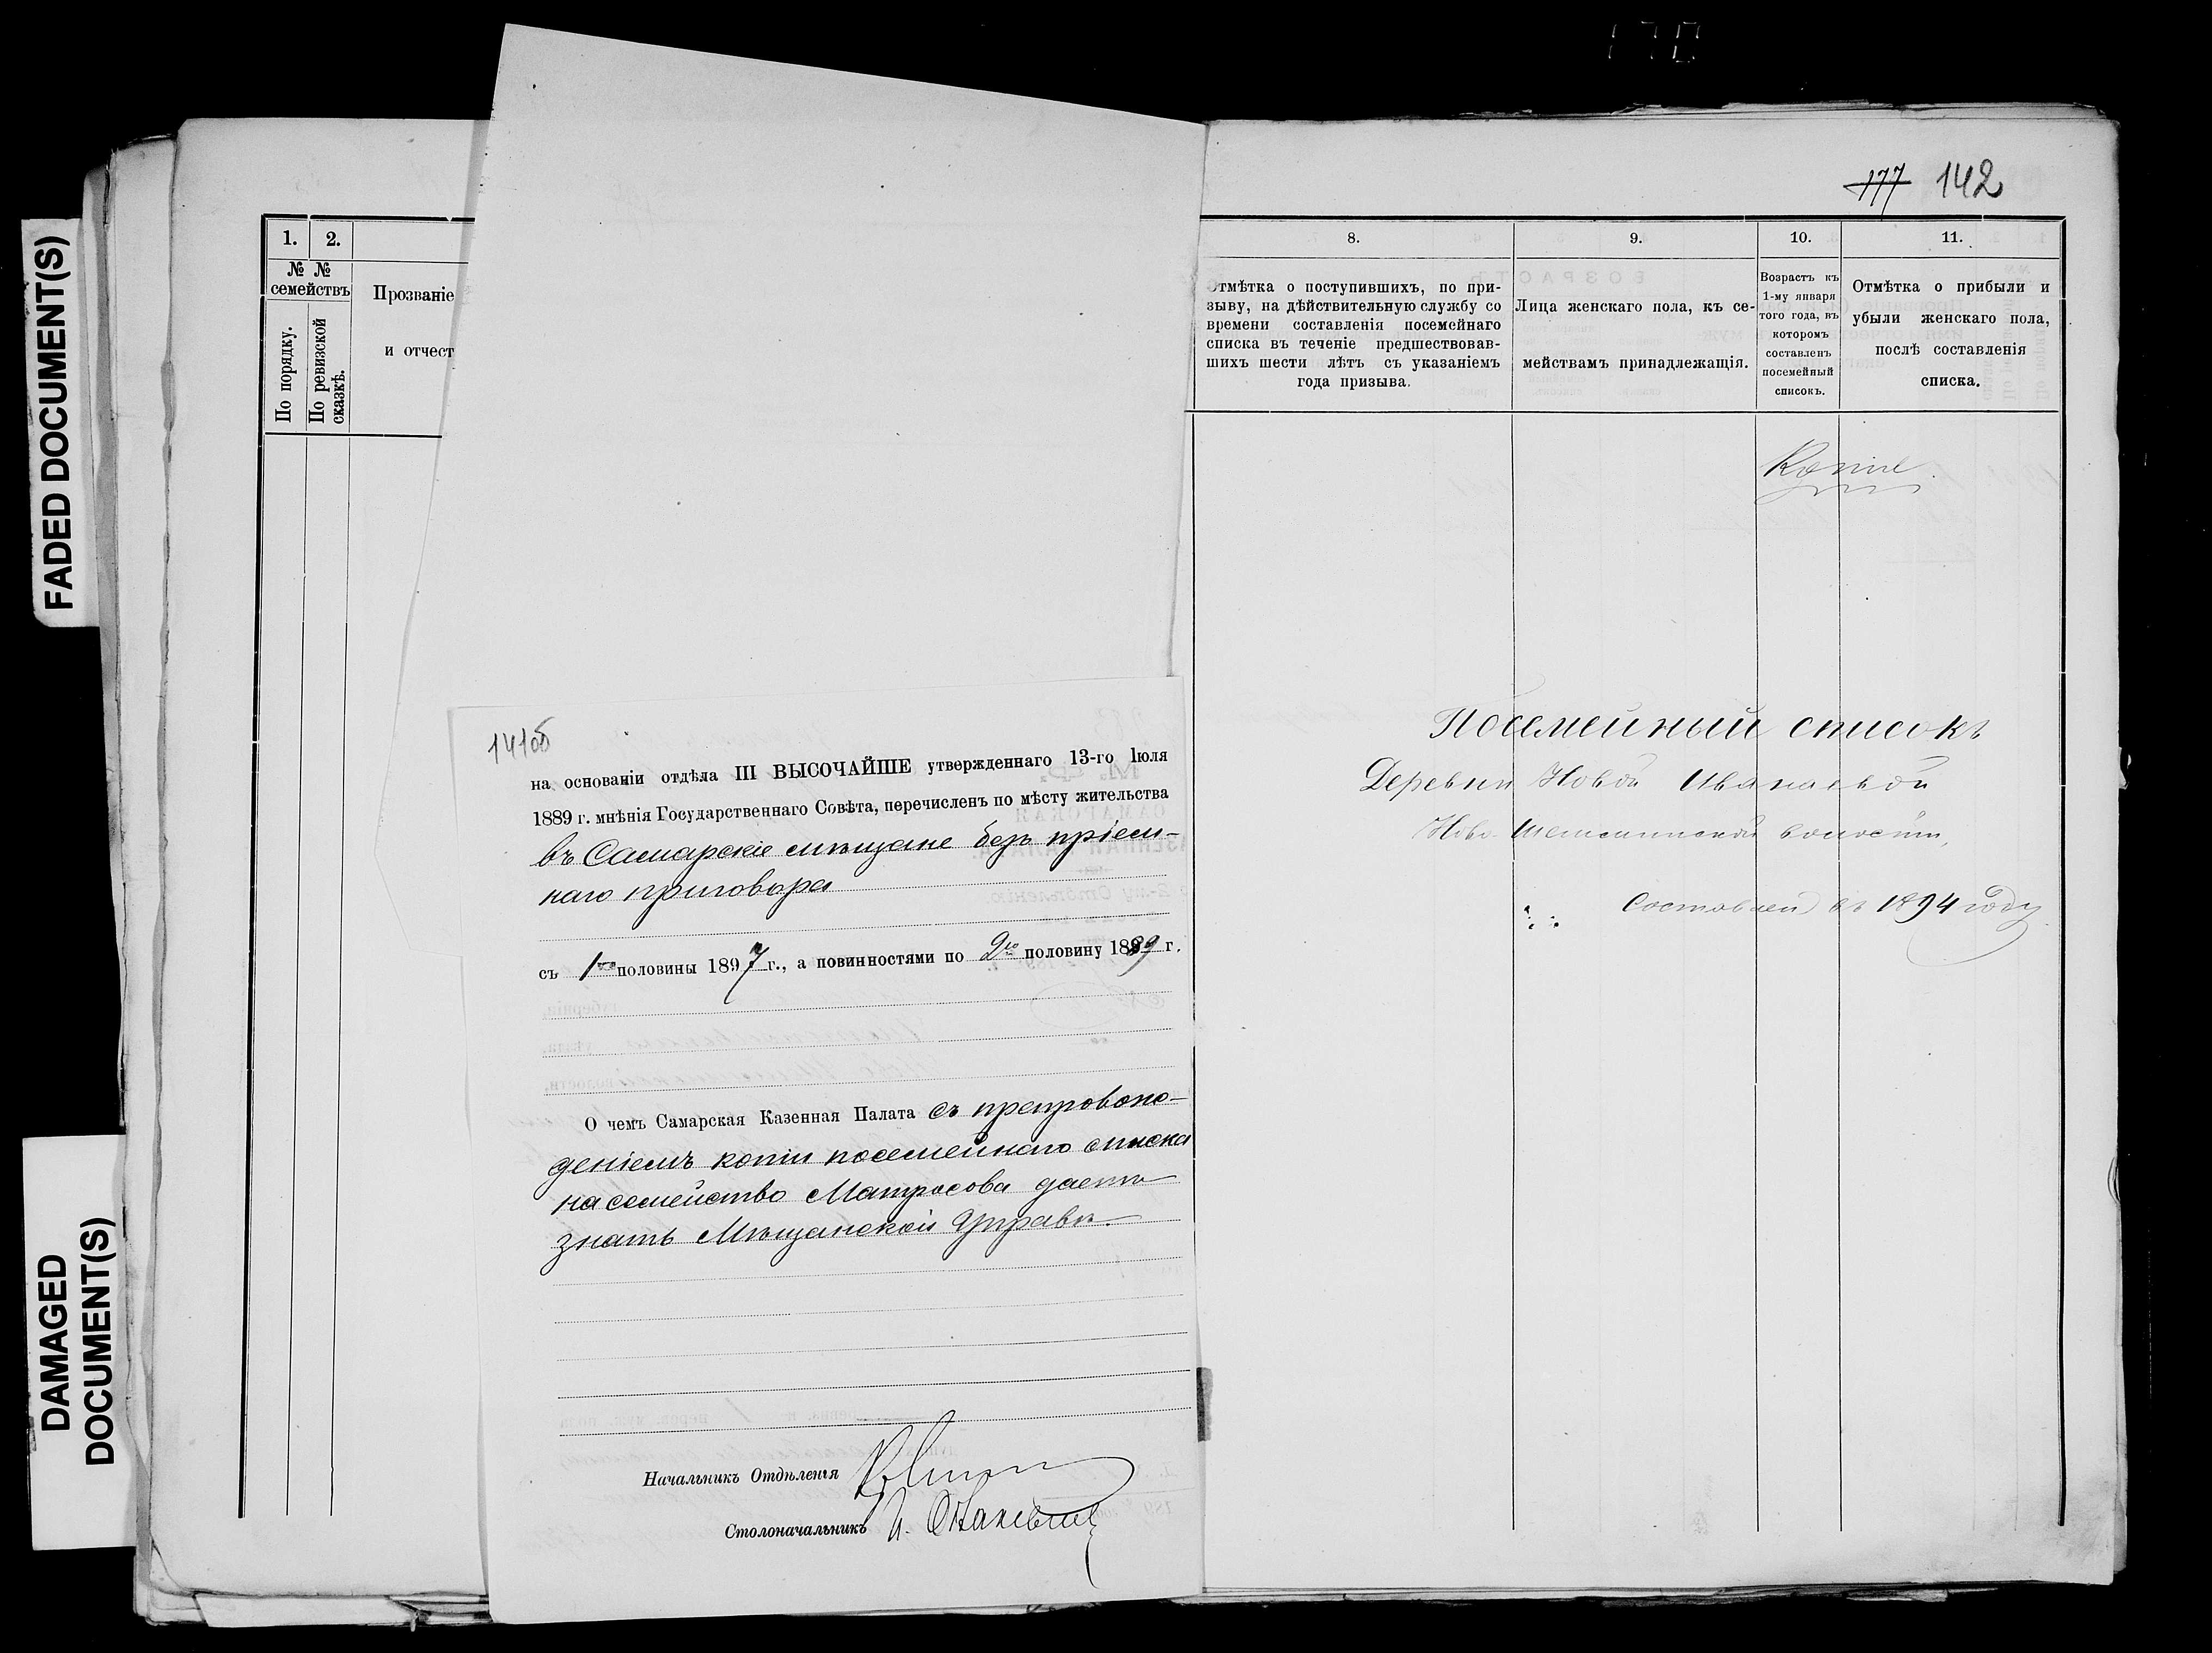 170
FADED DOCUMENT(S)
DAMAGED
DOCUMENT(S)
1.
2.
№ №
семействъ
По порядку.
По ревизской
сказкѣ.
Прозваніе
и отчест
141об
на основаніи отдѣла III ВЫСОЧАЙШЕ утвержденнаго 13-го Іюля
1889 г. мнѣнія Государственнаго Совѣта, перечисленъ по мѣсту жительства
въ Самарскіе мѣщане безъ пріем-
наго приговора
съ 1ой половины 1897 г., а повинностями по 2ю половину 1899 г.
О чемъ Самарская Казенная Палата съ препровож-
деніемъ копіи посемейнаго списка
на семейство Матросова даетъ
знать Мѣщанской Управѣ.
Начальникъ Отдѣленія
Столоначальникъ
177 142
8.
9.
10.
11.
Отмѣтка о поступившихъ, по при-
зыву, на дѣйствительную службу со
времени составленія посемейнаго
списка въ теченіе предшествовав-
шихъ шести лѣтъ съ указаніемъ
года призыва.
Лица женскаго пола, къ се-
мействамъ принадлежащія.
Возрастъ къ
1-му января
того года, въ
которомъ
составленъ
посемейный
списокъ.
Отмѣтка о прибыли и
убыли женскаго пола,
послѣ составленія
списка.
Копія
Посемейный списокъ
Деревни Новой Иванаевой
Ново-Шешминской волости,
Составлен въ 1894 году